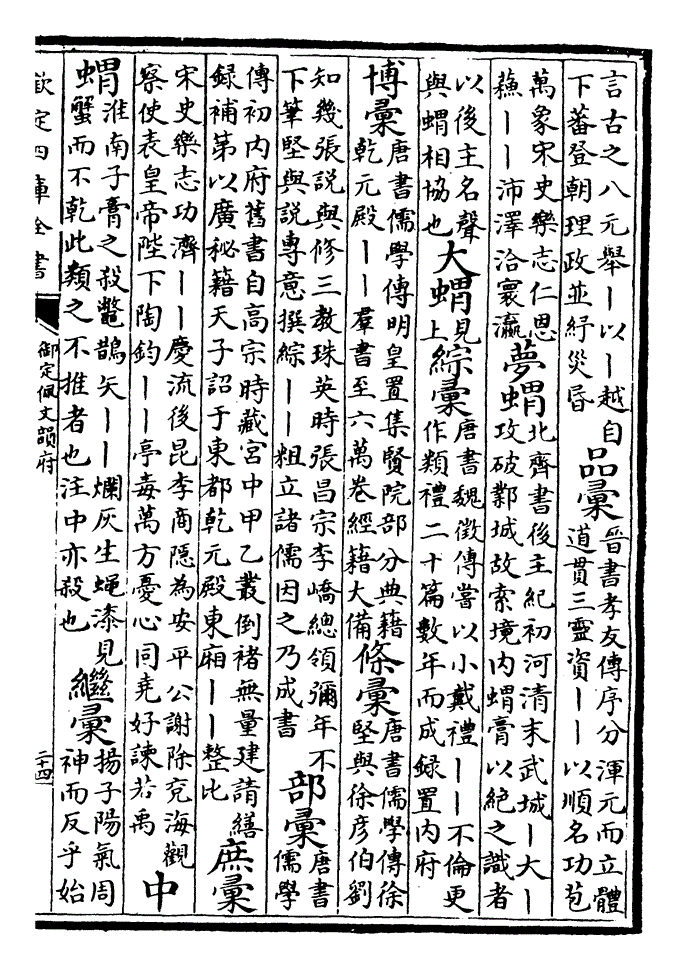 言古之八元舉｜以｜越自
下蕃登朝理政並紓災眚
品彙
晉書孝友傳序分渾元而立體
道貫三靈資｜｜以順名功苞
萬象宋史樂志仁恩
蘓｜｜沛澤洽寰瀛
夢蝟
北齊書後主紀初河清末武城｜大｜
攻破鄴城故索境内蝟膏以絶之識者
以後主名聲
與蝟相協也
大蝟
見
上
綜彙
唐書魏徵傳嘗以小戴禮｜｜不倫更
作類禮二十篇數年而成録置内府
博彙
唐書儒學傳明皇置集賢院部分典籍
乾元殿｜｜羣書至六萬卷經籍大備
條彙
唐書儒學傳徐
堅與徐彦伯劉
知幾張説與修三教珠英時張昌宗李嶠總領彌年不
下筆堅與説專意撰綜｜｜粗立諸儒因之乃成書
部彙
唐書
儒學
傳初内府舊書自高宗時藏宫中甲乙叢倒褚無量建請繕
録補第以廣秘籍天子詔于東都乾元殿東廂｜｜整比
庶彙
宋史樂志功濟｜｜慶流後昆李商隱為安平公謝除兖海觀
察使表皇帝陛下陶鈞｜｜亭毒萬方憂心同堯好諫若禹
中
蝟
淮南子膏之殺鼈鵲矢｜｜爛灰生蠅漆見
蟹而不乾此類之不推者也注中亦殺也
繼彙
揚子陽氣周
神而反乎始
欽定四庫全書
御定佩文韻府
二十四